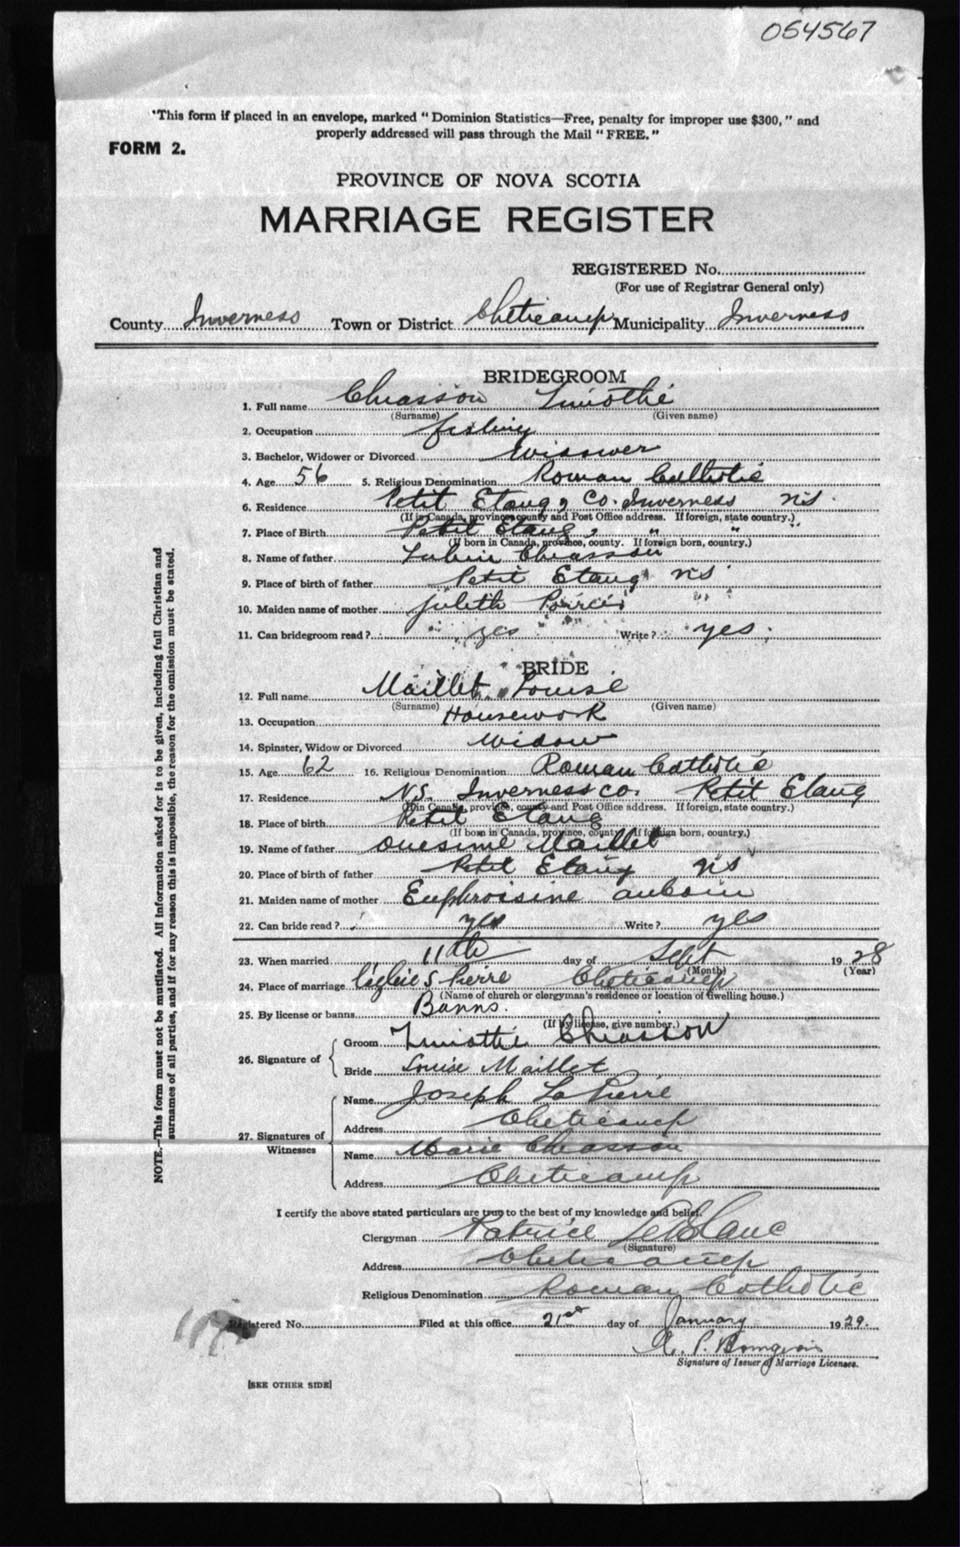 054567
*This form if placed in an envelope, marked "Dominion Statistics—Free, penalty for improper use $300," and
properly addressed will pass through the Mail "FREE."
FORM 2.
PROVINCE OF NOVA SCOTIA
MARRIAGE REGISTER
REGISTERED No.
(For use of Registrar General only)
County Inverness Town or District Cheticamp Municipality Inverness
BRIDEGROOM
1. Full name Chiasson Timothé
(Surname) (Given name)
2. Occupation fishing
3. Bachelor, Widower or Divorced Widower
4. Age 56 5. Religious Denomination Roman Catholic
6. Residence Petit Etang, Co. Inverness N.S.
(If in Canada, province, county and Post Office address. If foreign, state country.)
7. Place of Birth Petit Etang, " " "
(If born in Canada, province, county. If foreign born, country.)
8. Name of father Lubin Chiasson
9. Place of birth of father Petit Etang NS
10. Maiden name of mother Julith Poirier
11. Can bridegroom read? yes Write? yes.
BRIDE
12. Full name Maillet Louise
(Surname) (Given name)
13. Occupation Housework
14. Spinster, Widow or Divorced Widow
15. Age 62 16. Religious Denomination Roman Catholic
17. Residence N.S. Inverness co. Petit Etang
(If in Canada, province, county and Post Office address. If foreign, state country.)
18. Place of birth Petit Etang
(If born in Canada, province, county. If foreign born, country.)
19. Name of father Onesime Maillet
20. Place of birth of father Petit Etang NS
21. Maiden name of mother Euphroisine auboin
22. Can bride read? yes Write? yes
23. When married 11th day of Sept 1928
(Month) (Year)
24. Place of marriage L'église S Pierre Cheticamp
(Name of church or clergyman's residence or location of dwelling house.)
25. By license or banns Banns.
(If by license, give number.)
Groom Timothe Chiasson
26. Signature of
Bride Louise Maillet
Name Joseph LaPierre
Address Cheticamp
27. Signatures of
Witnesses
Name Marie Chiasson
Address Cheticamp
I certify the above stated particulars are true to the best of my knowledge and belief.
Clergyman Patrice LeBlanc
(Signature)
Address Cheticamp
Religious Denomination Roman Catholic
Registered No. Filed at this office 21st day of January 1929.
Signature of Issuer of Marriage Licenses.
[SEE OTHER SIDE]
NOTE.—This form must not be mutilated. All information asked for is to be given, including full Christian and
surnames of all parties, and if for any reason this is impossible, the reason for the omission must be stated.